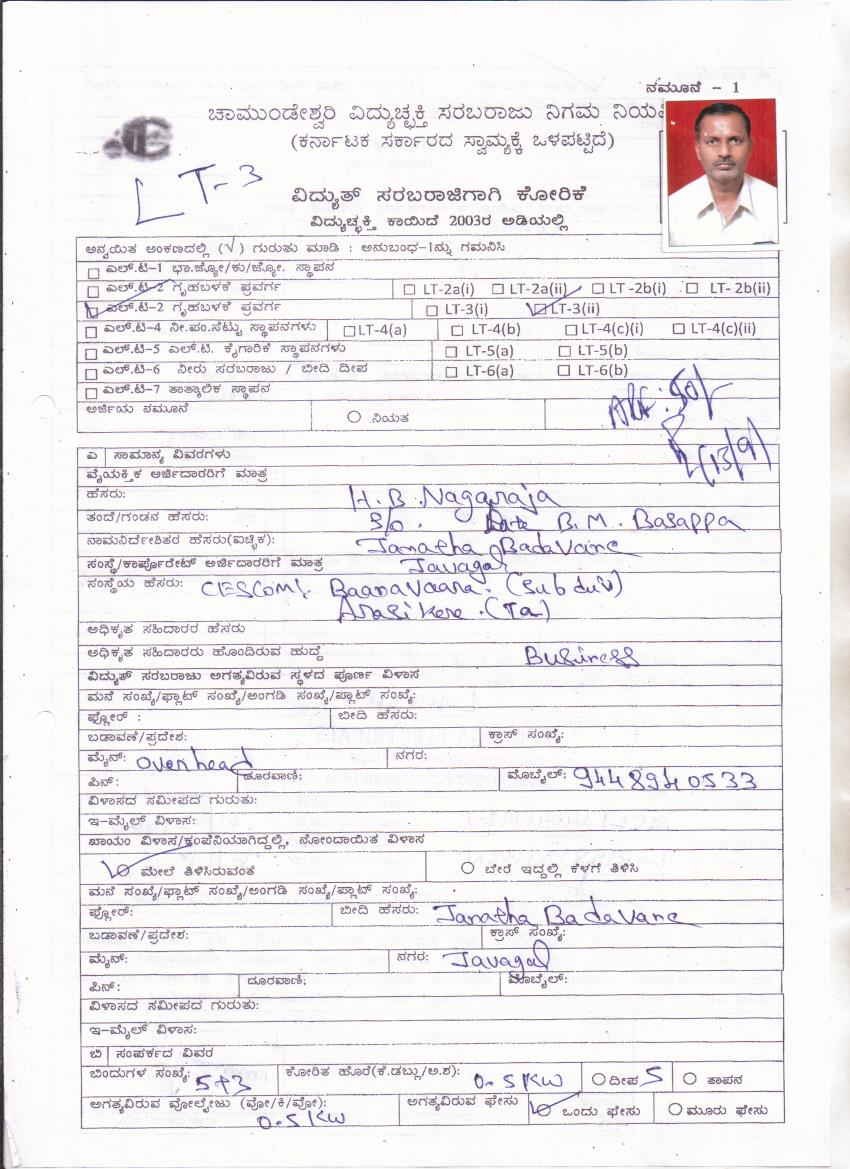 ನಮೂನೆ - 1
ಚಾಮುಂಡೇಶ್ವರಿ ವಿದ್ಯುಚ್ಛಕ್ತಿ ಸರಬರಾಜು ನಿಗಮ
(ಕರ್ನಾಟಕ ಸರ್ಕಾರದ ಸ್ವಾಮ್ಯಕ್ಕೆ ಒಳಪಟ್ಟಿದೆ)
LT-3
ವಿದ್ಯುತ್ ಸರಬರಾಜಿಗಾಗಿ ಕೋರಿಕೆ
ವಿದ್ಯುಚ್ಛಕ್ತಿ ಕಾಯಿದೆ 2003ರ ಅಡಿಯಲ್ಲಿ
ಅನ್ವಯಿತ ಅಂಕಣದಲ್ಲಿ (√) ಗುರುತು ಮಾಡಿ : ಅನುಬಂಧ-1ನ್ನು ಗಮನಿಸಿ
ಎಲ್.ಟಿ-1 ಭಾ.ಜ್ಯೋ/ಕು/ಜ್ಯೋ. ಸ್ಥಾಪನ
ಎಲ್.ಟಿ-2 ಗೃಹಬಳಕೆ ಪ್ರವರ್ಗ LT-2a(i) LT-2a(ii) LT -2b(i) LT- 2b(ii)
ಎಲ್.ಟಿ-2 ಗೃಹಬಳಕೆ ಪ್ರವರ್ಗ LT-3(i) LT-3(ii)
ಎಲ್.ಟಿ-4 ನೀ.ಪಂ.ಸೆಟ್ಟು ಸ್ಥಾಪನಗಳು LT-4(a) LT-4(b) LT-4(c)(i) LT-4(c)(ii)
ಎಲ್.ಟಿ-5 ಎಲ್.ಟಿ. ಕೈಗಾರಿಕೆ ಸ್ಥಾಪನಗಳು LT-5(a) LT-5(b)
ಎಲ್.ಟಿ-6 ನೀರು ಸರಬರಾಜು / ಬೀದಿ ದೀಪ LT-6(a) LT-6(b)
ಎಲ್.ಟಿ-7 ತಾತ್ಕಾಲಿಕ ಸ್ಥಾಪನ
ಅರ್ಜಿಯ ನಮೂನೆ ನಿಯತ
ಎ ಸಾಮಾನ್ಯ ವಿವರಗಳು
ವೈಯಕ್ತಿಕ ಅರ್ಜಿದಾರರಿಗೆ ಮಾತ್ರ
ಹೆಸರು: H.B.Nagaraja
ತಂದೆ/ಗಂಡನ ಹೆಸರು: S/o. Late B.M. Basappa
ನಾಮನಿರ್ದೇಶಿತರ ಹೆಸರು(ಐಚ್ಛಿಕ): Janatha Badavane
ಸಂಸ್ಥೆ/ಕಾರ್ಪೊರೇಟ್ ಅರ್ಜಿದಾರರಿಗೆ ಮಾತ್ರ Javagal
ಸಂಸ್ಥೆಯ ಹೆಸರು: CESCOM. Baanavaara. (Sub div)
Arasikere. (Ta)
ಅಧಿಕೃತ ಸಹಿದಾರರ ಹೆಸರು
ಅಧಿಕೃತ ಸಹಿದಾರರು ಹೊಂದಿರುವ ಹುದ್ದೆ Business
ವಿದ್ಯುತ್ ಸರಬರಾಜು ಅಗತ್ಯವಿರುವ ಸ್ಥಳದ ಪೂರ್ಣ ವಿಳಾಸ
ಮನೆ ಸಂಖ್ಯೆ/ಫ್ಲಾಟ್ ಸಂಖ್ಯೆ/ಅಂಗಡಿ ಸಂಖ್ಯೆ/ಪ್ಲಾಟ್ ಸಂಖ್ಯೆ:
ಫ್ಲೋರ್ : ಬೀದಿ ಹೆಸರು:
ಬಡಾವಣೆ/ಪ್ರದೇಶ: ಕ್ರಾಸ್ ಸಂಖ್ಯೆ:
ಮೈನ್: Overhead ನಗರ:
ಪಿನ್: ದೂರವಾಣಿ: ಮೊಬೈಲ್: 9448940533
ವಿಳಾಸದ ಸಮೀಪದ ಗುರುತು:
ಇ-ಮೈಲ್ ವಿಳಾಸ:
ಖಾಯಂ ವಿಳಾಸ/ಕಂಪೆನಿಯಾಗಿದ್ದಲ್ಲಿ, ನೋಂದಾಯಿತ ವಿಳಾಸ
ಮೇಲೆ ತಿಳಿಸಿರುವಂತೆ ಬೇರೆ ಇದ್ದಲ್ಲಿ ಕೆಳಗೆ ತಿಳಿಸಿ
ಮನೆ ಸಂಖ್ಯೆ/ಫ್ಲಾಟ್ ಸಂಖ್ಯೆ/ಅಂಗಡಿ ಸಂಖ್ಯೆ/ಪ್ಲಾಟ್ ಸಂಖ್ಯೆ:
ಫ್ಲೋರ್: ಬೀದಿ ಹೆಸರು: Janatha Badavane
ಬಡಾವಣೆ/ಪ್ರದೇಶ: ಕ್ರಾಸ್ ಸಂಖ್ಯೆ:
ಮೈನ್: ನಗರ: Javagal
ಪಿನ್: ದೂರವಾಣಿ: ಮೊಬೈಲ್:
ವಿಳಾಸದ ಸಮೀಪದ ಗುರುತು:
ಇ-ಮೈಲ್ ವಿಳಾಸ:
ಬಿ ಸಂಪರ್ಕದ ವಿವರ
ಬಿಂದುಗಳ ಸಂಖ್ಯೆ: 5+3 ಕೋರಿತ ಹೊರೆ(ಕೆ.ಡಬ್ಲು/ಅ.ಶ): 0.5 KW ದೀಪ 5 ತಾಪನ
ಅಗತ್ಯವಿರುವ ವೋಲ್ಟೇಜು (ವೋ/ಕಿ/ವೋ): 0.5 KW ಅಗತ್ಯವಿರುವ ಫೇಸು ಒಂದು ಫೇಸು ಮೂರು ಫೇಸು